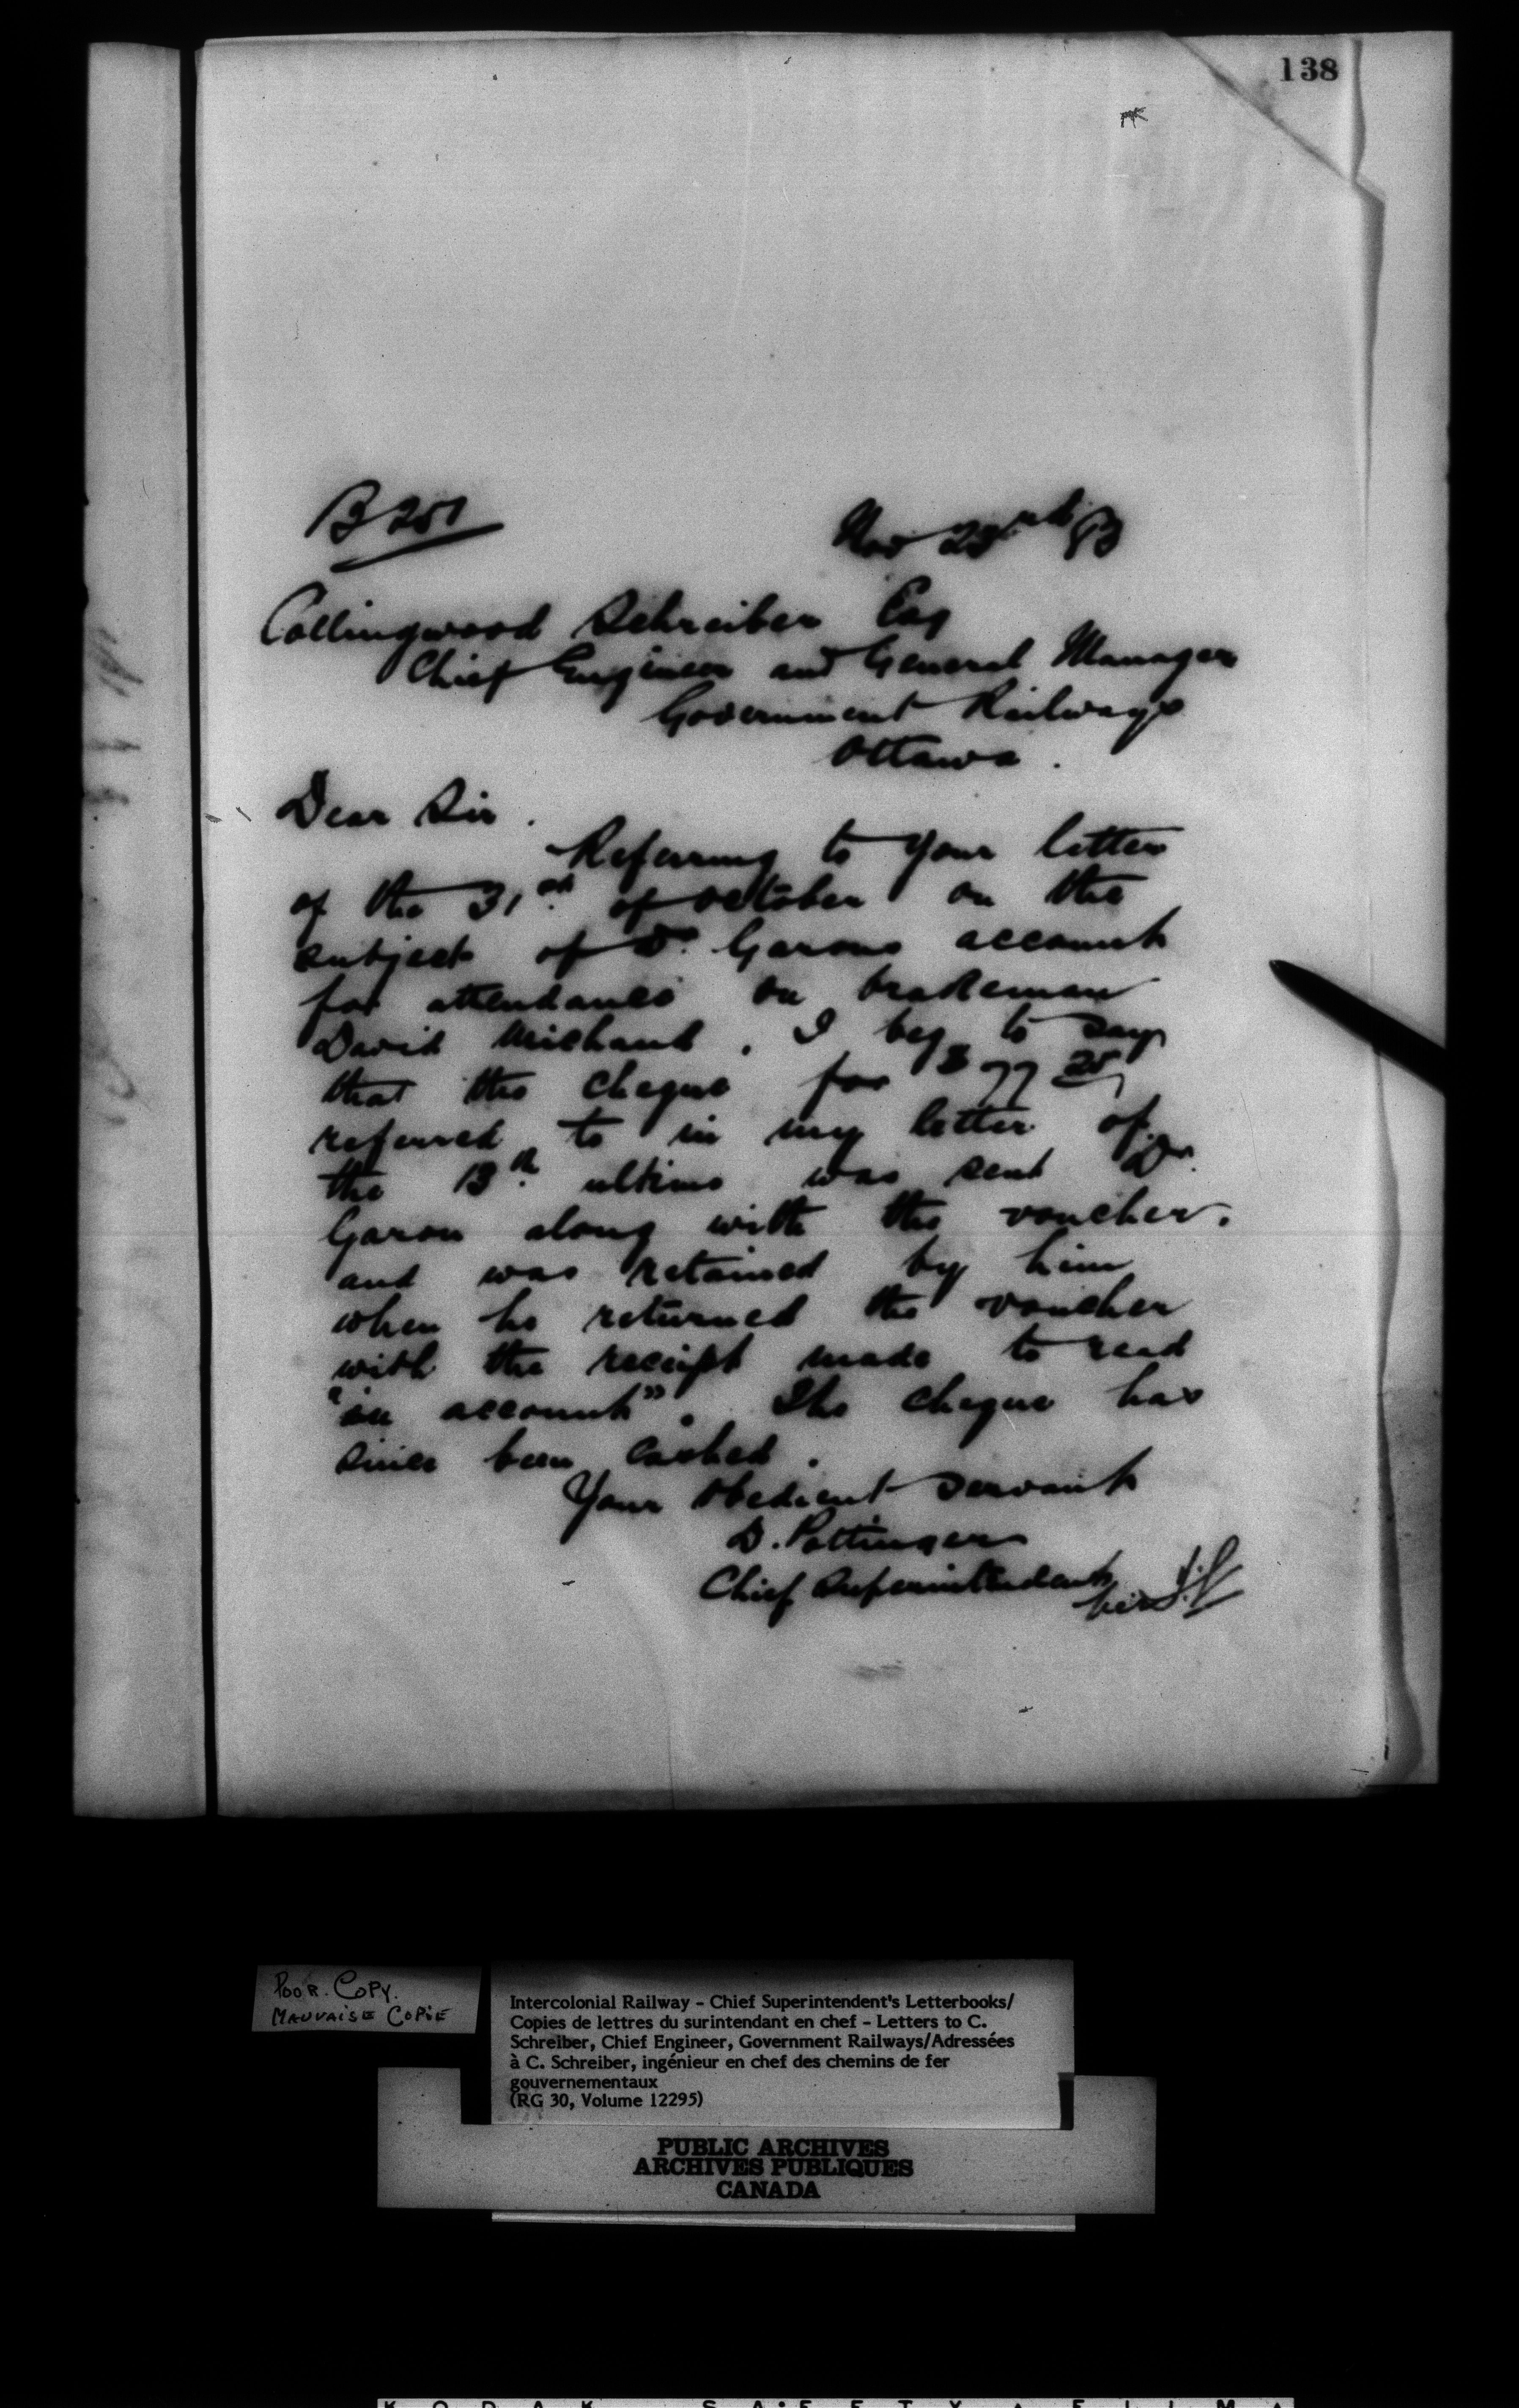 138
B 251
Nov 23rd 93
Collingwood Schreiber Esq
Chief Engineer and General Manager
Government Railways
Ottawa.
Dear Sir.
Referring to your letter
of the 31st of October on the
subject of Dr Garons account
for attendance on brakeman
David Michaud. I beg to say
that the cheque for $77 25
referred to in my letter of
the 13th ultimo was sent Dr.
Garon along with the voucher.
and was retained by him
when he returned the voucher
with the receipt made to read
"on account". The cheque has
since been cashed.
Your Obedient Servant
D. Pottinger
Chief Superintendent
per
POOR. COPY.
MAUVAISE COPIE
Intercolonial Railway - Chief Superintendent's Letterbooks/
Copies de lettres du surintendant en chef - Letters to C.
Schreiber, Chief Engineer, Government Railways/Adressées
à C. Schreiber, ingénieur en chef des chemins de fer
gouvernementaux
(RG 30, Volume 12295)
PUBLIC ARCHIVES
ARCHIVES PUBLIQUES
CANADA
KODAK SAFETY FILM